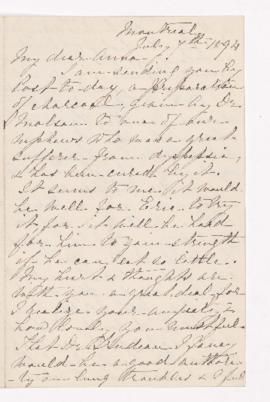 Montreal,
July 7th 1894
My dear Anna,
I am sending you by
Post to-day, a preparation
of charcoal, given by Dr
Molson to one of our
nephews who was a great
sufferer from dyspepsia,
& has been cured by it.
It seems to me, it would
be well for Eric to try
it, for it will be hard
for him to gain strength
if he can eat so little.
My heart & thoughts are
with you a great deal, for
I your anxiety is
you
That Dr. Trudeau I fancy
would be a good author-
ity on lung troubles & I